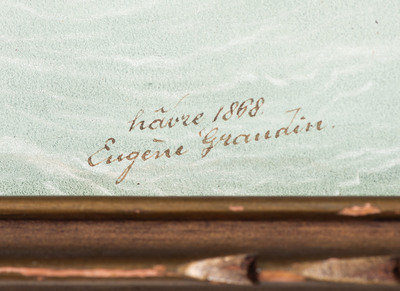 hâvre 1868
Eugène Grandin.